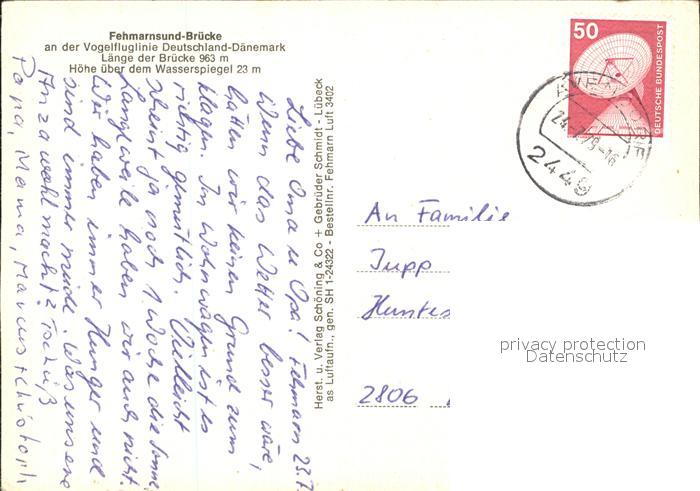 Fehmarnsund-Brücke
an der Vogelfluglinie Deutschland-Dänemark
Länge der Brücke 963 m
Höhe über dem Wasserspiegel 23 m
Fehmarn 23.7.
Liebe Oma u Opa!
Wenn das Wetter besser wäre,
hätten wir keinen Grund zum
klagen. Im Wohnwagen ist es
richtig gemütlich. Vielleicht
scheint ja noch 1 Woche die Sonne
Langweile haben wir auch nicht.
Wir haben immer Hunger und
sind immer müde. Was unsere
wohl macht? Tschüß
Papa, Mama, Marcus + Christoph
Herst. u. Verlag Schöning & Co + Gebrüder Schmidt - Lübeck
as Luftaufn., gen. SH 1-24322 - Bestellnr. Fehmarn Luft 3402
50
DEUTSCHE BUNDESPOST
2449
An Familie
Jupp
2806
privacy protection
Datenschutz